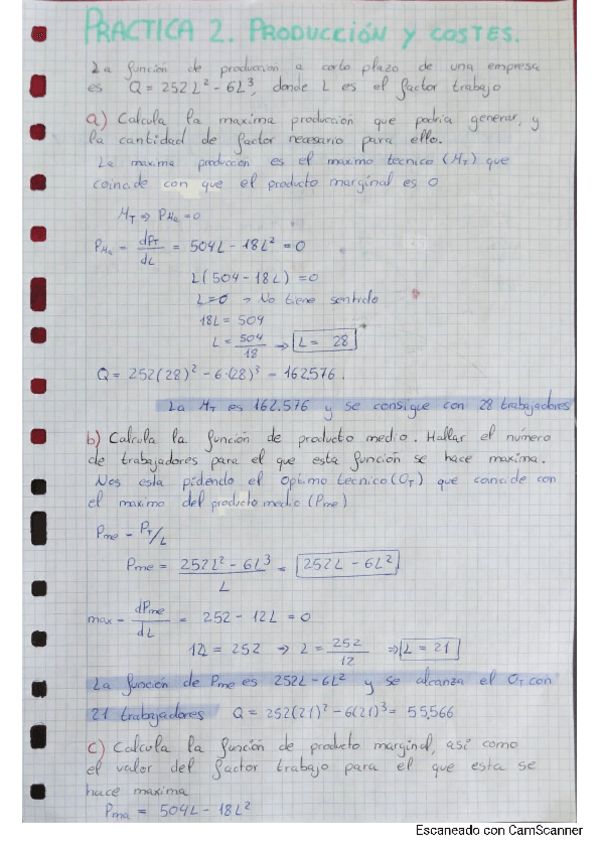 PRACTICA 2. PRODUCCIÓN Y COSTES.
La función de producción a corto plazo de una empresa
es Q = 252L² - 6L³, donde L es el factor trabajo
a) Calcula la maxima producción que podria generar, y
la cantidad de factor necesario para ello.
La maxima producción es el maximo tecnico (MT) que
coincide con que el producto marginal es 0
MT ⇒ PMa = 0
PMa = dPT/dL = 504L - 18L² = 0
L(504 - 18L) = 0
L=0 → No tiene sentido
18L = 504
L = 504/18 ⇒ L = 28
Q = 252(28)² - 6·(28)³ = 162576.
La MT es 162.576 y se consigue con 28 trabajadores
b) Calcula la función de producto medio. Hallar el número
de trabajadores para el que esta función se hace maxima.
Nos esta pidendo el Optimo tecnico (OT) que concide con
el maximo del producto medio (Pme)
Pme = PT/L
Pme = 252L² - 6L³/L = 252L - 6L²
max = dPme/dL = 252 - 12L = 0
12L = 252 → L = 252/12 ⇒ L = 21
La función de Pme es 252L - 6L² y se alcanza el OT con
21 trabajadores Q = 252(21)² - 6(21)³ = 55,566
c) Calcula la función de producto marginal, asi como
el valor del factor trabajo para el que esta se
hace maxima
Pma = 504L - 18L²
Escaneado con CamScanner